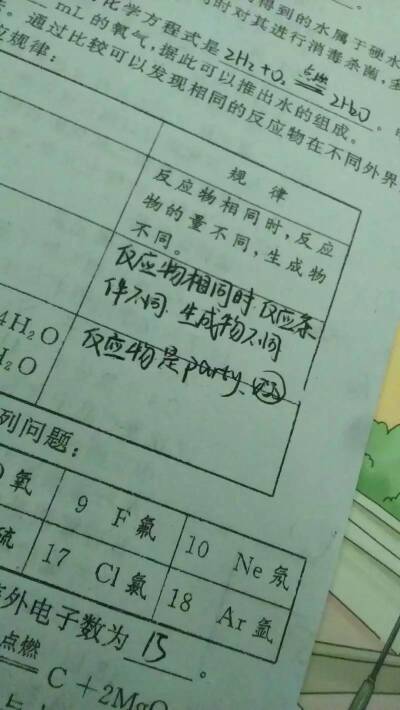 得到的水属于硬水
时对其进行消毒杀菌,
化学方程式是 2H₂+O₂ 点燃 2H₂O 。
mL的氧气,据此可以推出水的组成。
通过比较可以发现相同的反应物在不同外界
规律:
规 律
反应物相同时,反应
物的量不同,生成物
不同。
反应物相同时,反应条
件不同,生成物不同
4H₂O
H₂O
反应物是party、
列问题:
氧
9 F 氟
10 Ne 氖
硫
17 Cl 氯
18 Ar 氩
外电子数为 15 。
点燃
C + 2MgO